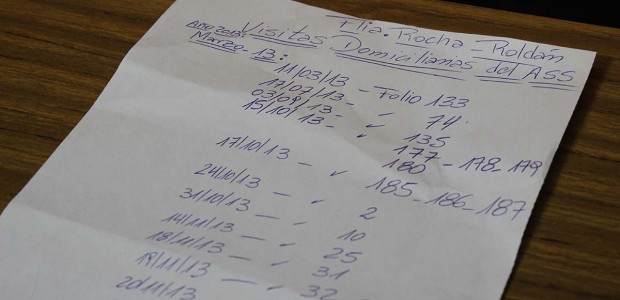 Flia. Rocha - Roldán
Año 2013: Visitas Domiciliarias del ASS
Marzo - 13:
11/03/13 - Folio 133
/07/13 - " 74
03/09/13 - " 135
15/10/13 - " 177 - 178 - 179
17/10/13 - " 180
24/10/13 - " 185 - 186 - 187
31/10/13 - " 2
14/11/13 - " 10
18/11/13 - " 25
19/11/13 - " 31
20/11/13 - " 32